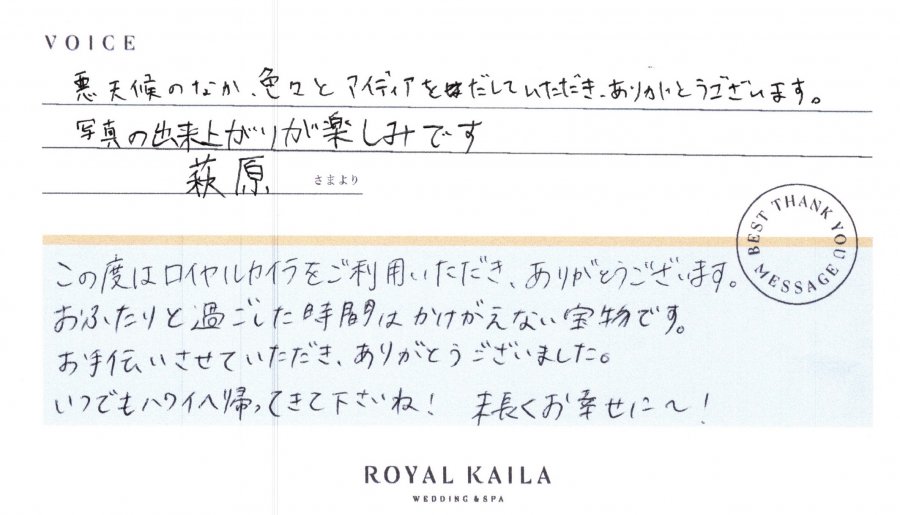 VOICE
悪天候のなか、色々とアイディアをだしていただき、ありがとうございます。
写真の出来上がりが楽しみです
萩原 さまより
BEST THANK YOU
MESSAGE
この度はロイヤルカイラをご利用いただき、ありがとうございます。
おふたりと過ごした時間はかけがえない宝物です。
お手伝いさせていただき、ありがとうございました。
いつでもハワイへ帰ってきて下さいね！ 末長くお幸せに〜！
ROYAL KAILA
WEDDING & SPA